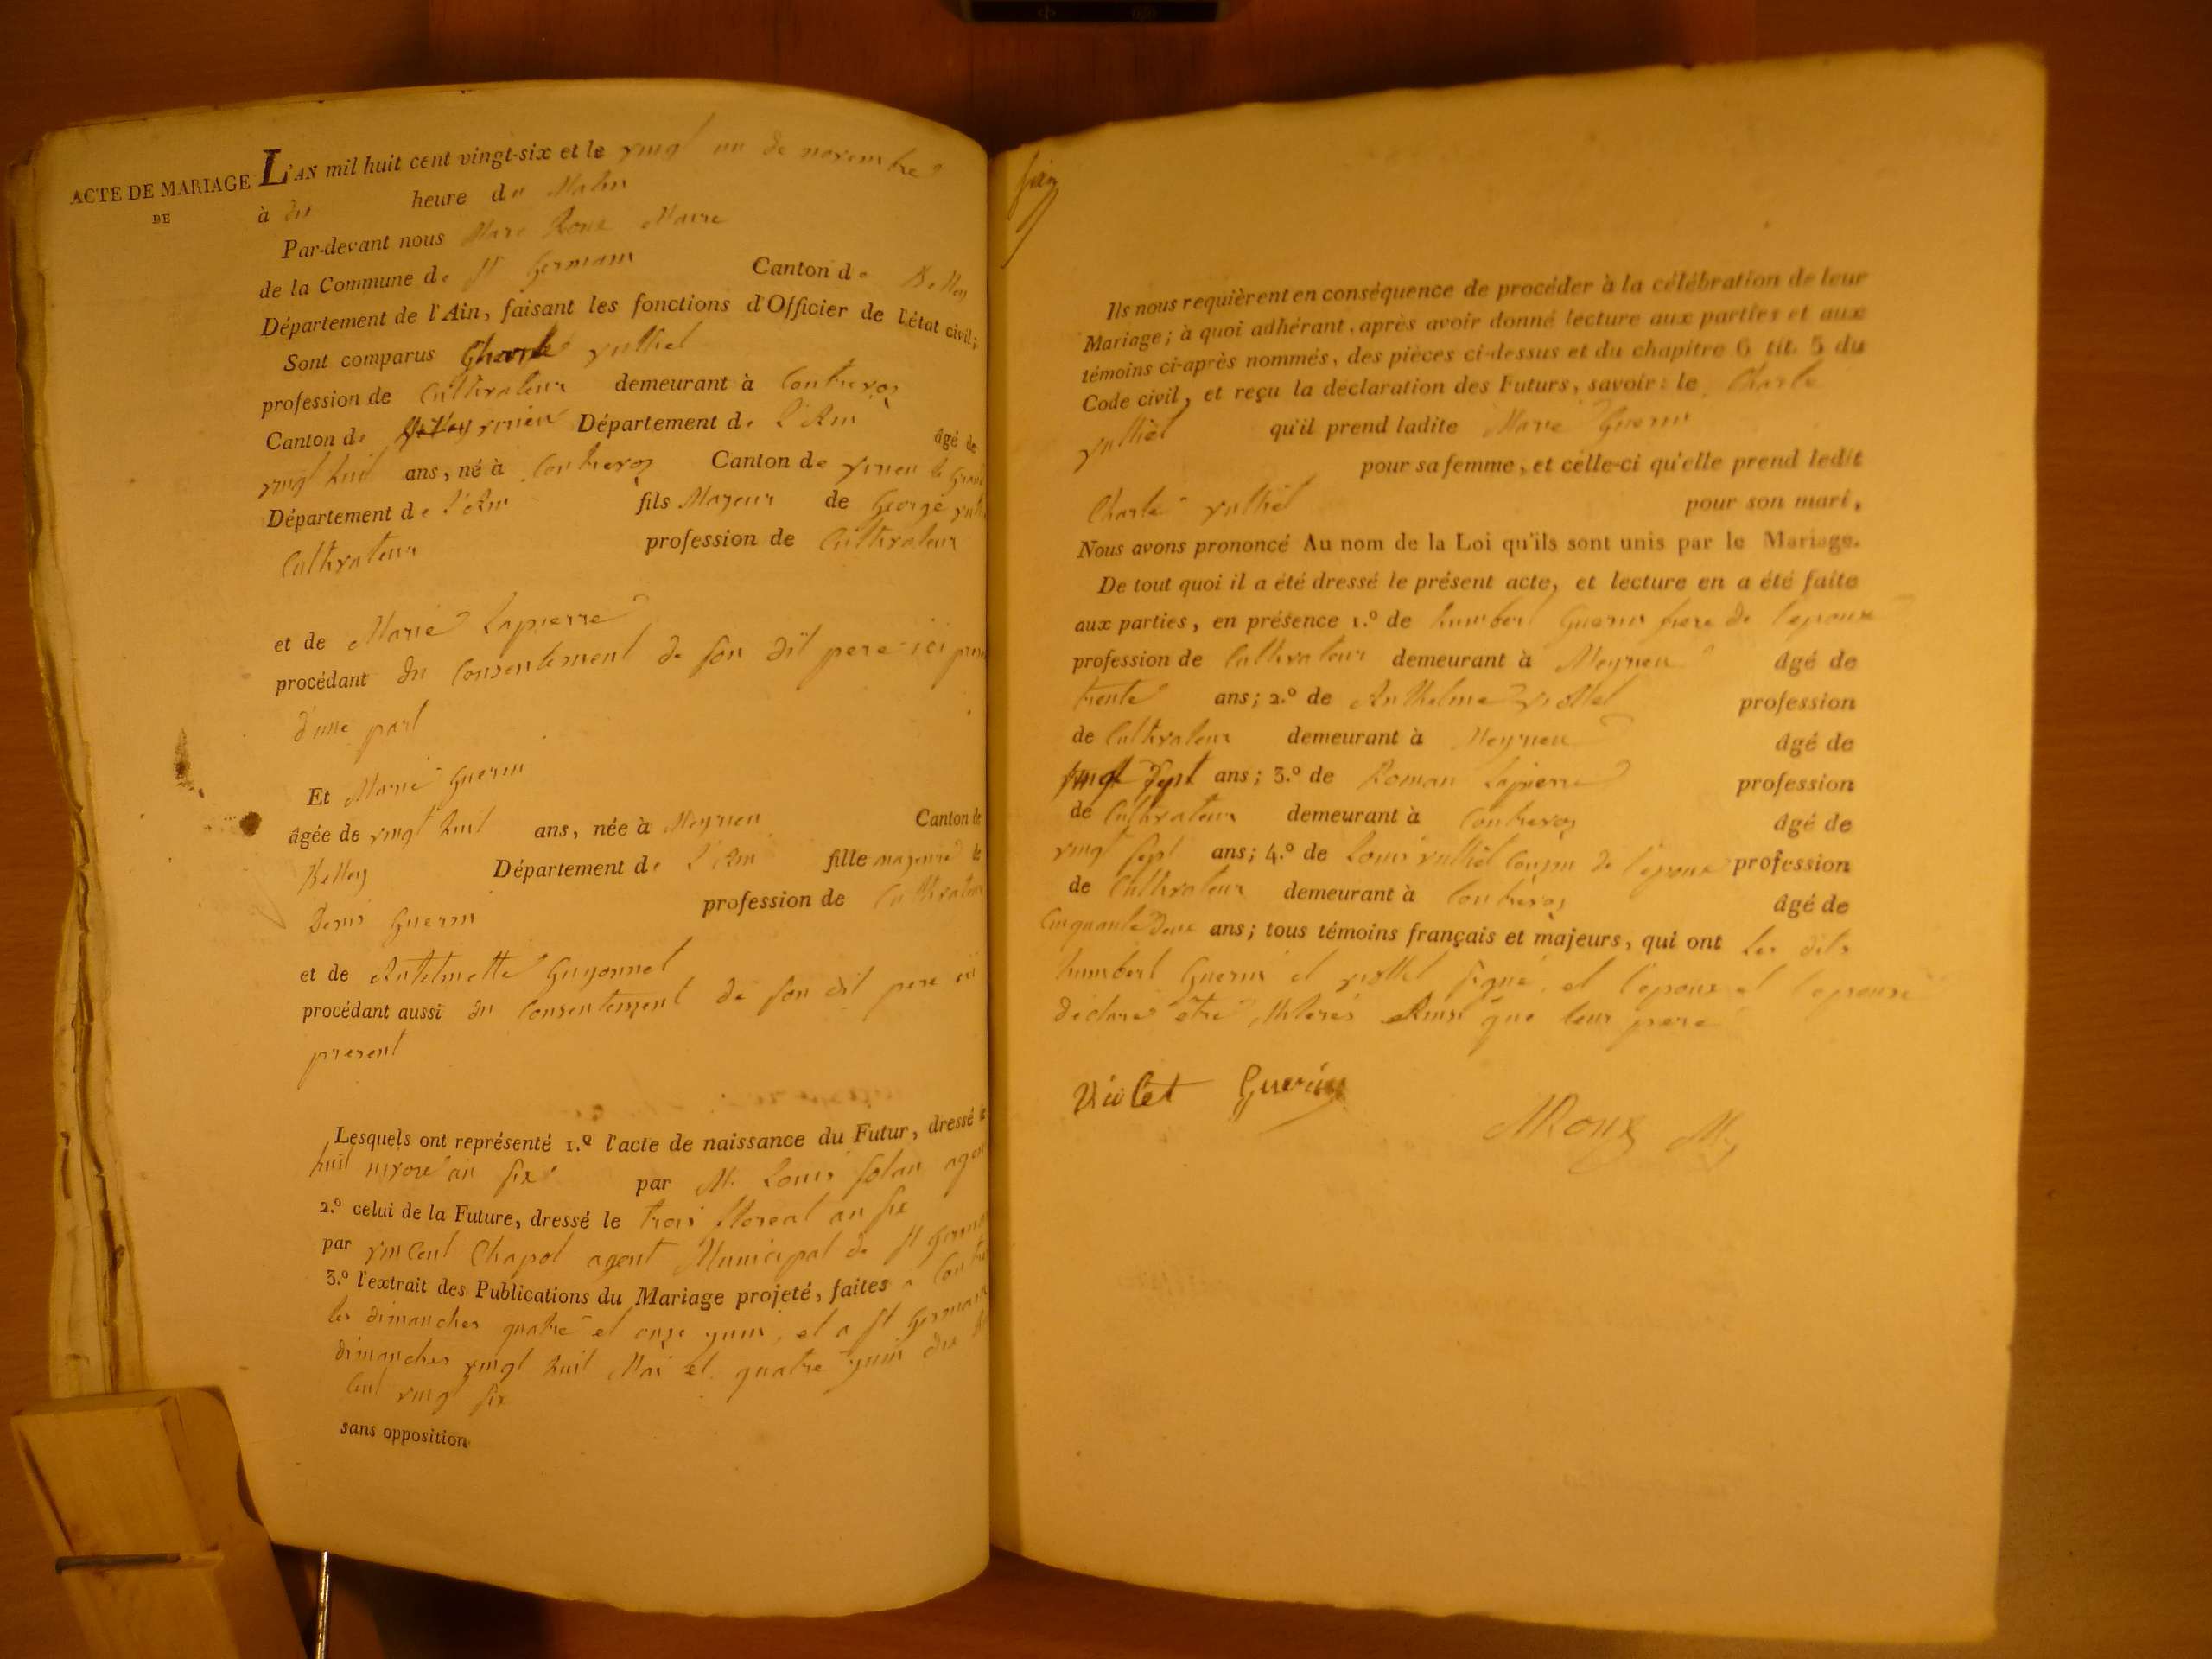 ACTE DE MARIAGE
DE
L'AN mil huit cent vingt-six et le vingt un de novembre
à dix heure du Matin
Par-devant nous Marc Roux Maire
de la Commune de St Germain Canton de Belley
Département de l'Ain, faisant les fonctions d'Officier de l'état civil;
Sont comparus Charle vulliet
profession de Cultivateur demeurant à Contrevoz
Canton de virieu Département de l'Ain âgé de
vingt huit ans, né à Contrevoz Canton de virieu le Grand
Département de l'Ain fils Majeur de George
Cultivateur profession de Cultivateur
et de Marie Lapierre
procédant du Consentement de son dit pere ici
d'une part
Et Marie Guerin
âgée de vingt huit ans, née à Meyrieu Canton de
Belley Département de l'Ain fille majeure de
Denis Guerin profession de Cultivateur
et de Antelmette Guyonnet
procédant aussi du Consentement de son dit pere ici
present
Lesquels ont représenté 1.º l'acte de naissance du Futur, dressé le
huit nivose an six par M. Louis
2.º celui de la Future, dressé le trois floreal an six
par vincent Chapot agent Municipal de St
3.º l'extrait des Publications du Mariage projeté, faites a
les dimanches quatre et onze juin, et a St Germain
dimanches vingt huit Mai et quatre juin dix
Cent vingt six
sans opposition
Ils nous requièrent en conséquence de procéder à la célébration de leur
Mariage; à quoi adhérant, après avoir donné lecture aux parties et aux
témoins ci-après nommés, des pièces ci-dessus et du chapitre 6 tit. 5 du
Code civil, et reçu la déclaration des Futurs, savoir: le Charle
vulliet qu'il prend ladite Marie Guerin
pour sa femme, et celle-ci qu'elle prend ledit
Charle vulliet pour son mari,
Nous avons prononcé Au nom de la Loi qu'ils sont unis par le Mariage.
De tout quoi il a été dressé le présent acte, et lecture en a été faite
aux parties, en présence 1.º de humbert Guerin frere de l'epouse
profession de Cultivateur demeurant à Meyrieu âgé de
trente ans; 2.º de Anthelme violet profession
de Cultivateur demeurant à Meyrieu âgé de
vingt sept ans; 3.º de Roman Lapierre profession
de Cultivateur demeurant à Contrevoz âgé de
vingt sept ans; 4.º de Louis vulliet Cousin de l'epoux profession
de Cultivateur demeurant à Contrevoz âgé de
Cinquante Deux ans; tous témoins français et majeurs, qui ont Les dits
humbert Guerin et violet signé, et l'epoux et l'epouse
déclaré être illiterés Ainsi que leur pere
Violet Guerin
MRoux